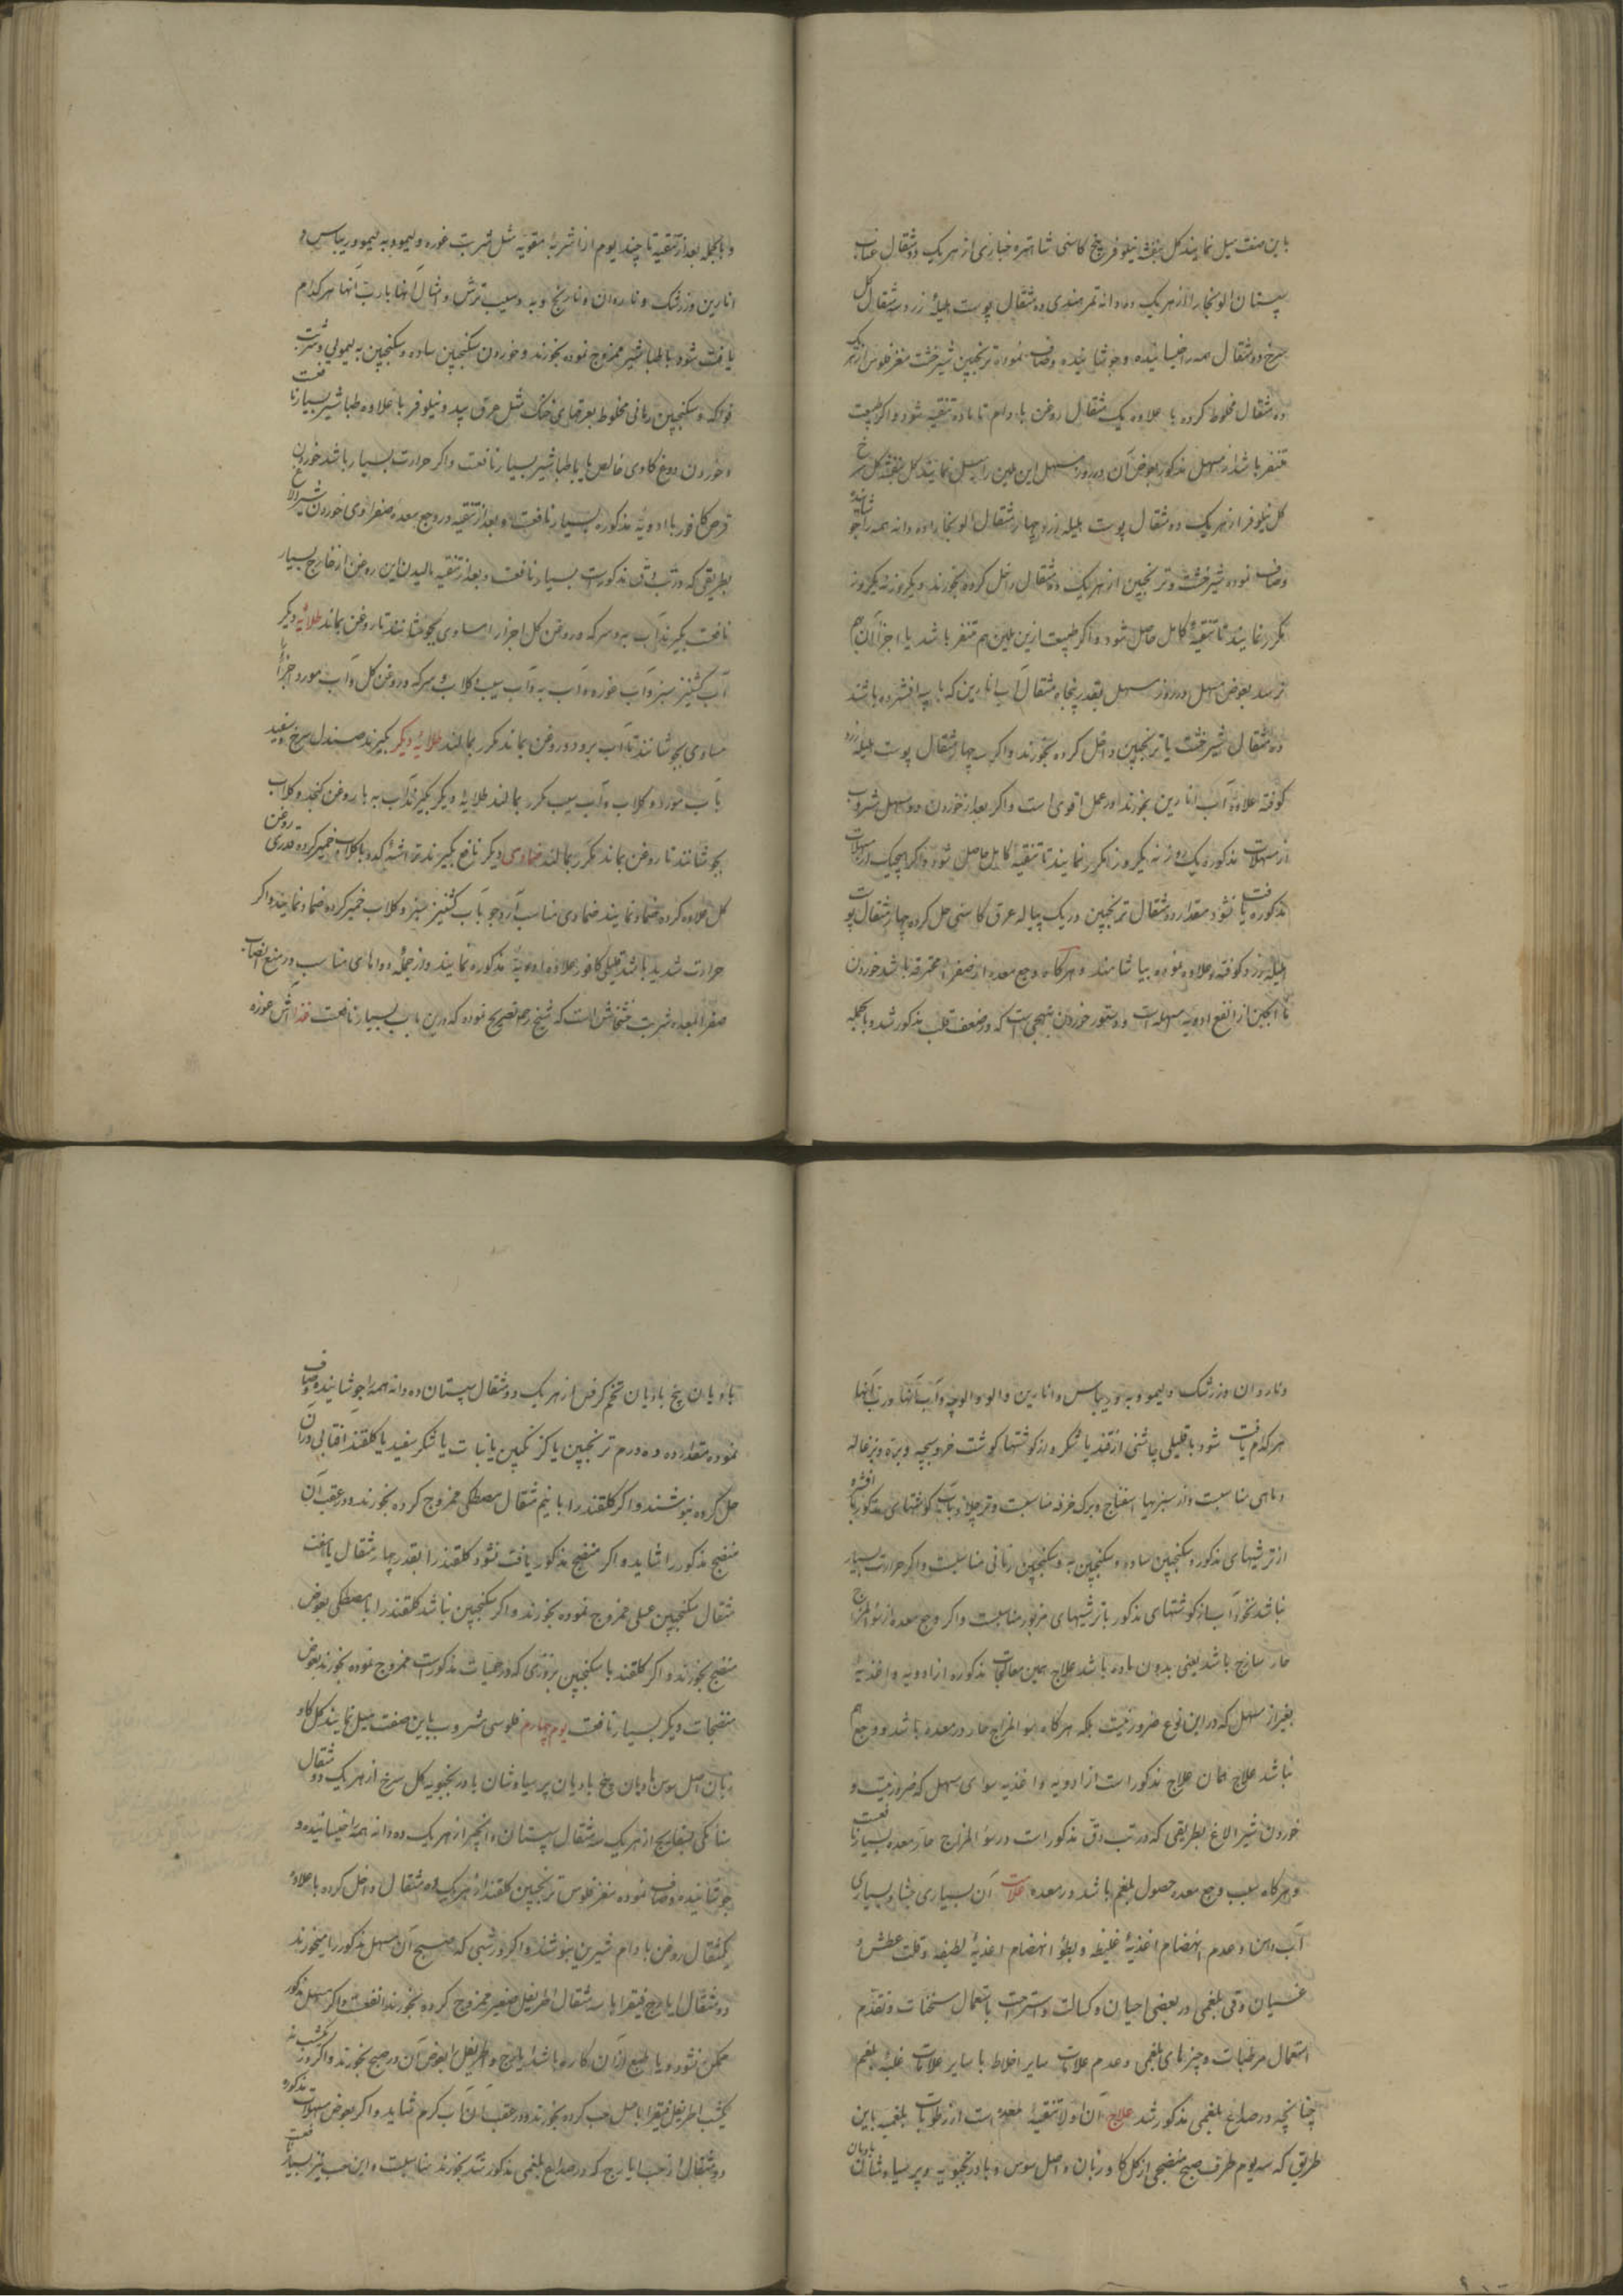 باین صفت میل نمایند کل بنفشه نیلوفر بیخ کاسنی شاهتره خبازی از هر یک دو مثقال عناب
سپستان الو بخارا از هر یک ده دانه تمر هندی ده مثقال پوست هلیلهٔ زرد سه مثقال کل
سرخ دو مثقال همه را خیسانیده و جوشانیده و صاف نموده ترنجبین شیرخشت مغز فلوس از هر یک
ده مثقال مخلوط کرده با علاوه یک مثقال روغن بادام تا ماده تنقیه شود و اکر طبیعت
متنفر باشد از مسهل مذکور بعوض آن در روز مسهل این ملین را میل نمایند کل بنفشه کل سرخ
کل نیلوفر از هر یک دو مثقال پوست هلیله زرد چهار مثقال الو بخارا ده دانه همه را جوشانیده
و صاف نموده شیرخشت و ترنجبین از هر یک ده مثقال داخل کرده بخورند و یکروز نه یکروز
مکرر نمایند تا تنقیهٔ کامل حاصل شود و اکر طبیعت ازین ملین هم متنفر باشد یا اجزا آن بهم
نرسد بعوض مسهل در روز مسهل بقدر پنجاه مثقال آب انارین که با پیه افشرده باشند
ده مثقال شیرخشت یا ترنجبین داخل کرده بخورند و اکر سه چهار مثقال پوست هلیله زرد
کوفته علاوه آب انارین بخورند در عمل اقوی است و اکر بعد از خوردن دو مسهل مشروب
از مسهلات مذکوره یک روز نه یکروز مکرر نمایند تا تنقیهٔ کامل حاصل شود و اکر هیچیک از مسهلات
مذکوره یافت نشود مقدار ده مثقال ترنجبین در یک پیاله عرق کاسنی حل کرده چهار مثقال پوست
هلیله زرد کوفته و علاوه نموده بیاشامند و هر کاه وجع معده از صفرا محترقه باشد خوردن
ما الجبن از انفع ادویه مسهله است و دستور خوردن بنهجی است که در ضعف قلب مذکور شد و بالجمله
و بالجمله بعد از تنقیه تا چند یوم از اشربهٔ مقویه مثل شربت غوره و لیمو و به لیمو و ریباس و
انارین و زرشک و ناردان و نارنج و به و سیب ترش و امثال آنها یا رب آنها هر کدام
یافت شود با طباشیر ممزوج نموده بخورند و خوردن سکنجبین ساده و سکنجبین به لیمویی و شربت
فواکه و سکنجبین رمانی مخلوط بعرقهای خنک مثل عرق بید و نیلوفر با علاوه طباشیر بسیار نافعت
و خوردن دوغ کاوی خالص یا با طباشیر بسیار نافعت و اکر حرارت بسیار باشد خوردن
قرص کافور با ادویهٔ مذکوره بسیار نافعت و بعد از تنقیه در وجع معده صفراوی خوردن شیر الاغ
بطریقی که در تب دق مذکورست بسیار نافعت و بعد از تنقیه مالیدن این روغن از خارج بسیار
نافعت بکیرند آب به و سرکه و روغن کل اجزا را مساوی بجوشانند تا روغن بماند طلائیه دیکر
آب کشنیز سبز و آب غوره و آب به و آب سیب و کلاب و سرکه و روغن کل و آب مورد اجزا
مساوی بجوشانند تا آب برود و روغن بماند مکرر بمالند طلائیهٔ دیکر بکیرند صندل سرخ و سفید
با آب مورد و کلاب و آب سیب مکرر بمالند طلائیهٔ دیکر بکیرند آب به با روغن کنجد و کلاب
بجوشانند تا روغن بماند مکرر بمالند ضمادی دیکر نافع بکیرند تراشهٔ کدو با کلاب خمیر کرده قدری روغن
کل علاوه کرده ضماد نمایند ضمادی مناسب آرد جو با آب کشنیز سبز و کلاب خمیر کرده ضماد نمایند و اکر
حرارت شدید باشد قلیلی کافور علاوه ادویهٔ مذکوره نمایند و از جمله دواهای مناسب در منع انصباب
صفرا بمعده شربت خشخاش است که شیخ رحمه تصریح نموده که درین باب بسیار نافعت غذا آش غوره
و ناردان و زرشک و لیمو و به و ریباس و انارین و الو و الوچه و آب آنها و رب آنها
هر کدام یافت شود با قلیلی چاشنی از قند یا شکر و از کوشتها کوشت خروسبچه و بره و بزغاله
و ماهی مناسبت و از سبزیها اسفناج و برک خرفه مناسبت و قرص چلاو با آب کوشتهای مذکور با افشره
از ترشیهای مذکور و سکنجبین ساده و سکنجبین به و سکنجبین رمانی مناسبت و اکر حرارت بسیار
نباشد نخود آب از کوشتهای مذکور با ترشیهای مزبور مناسبت و اکر وجع معده از سؤ المزاج
حار ساذج باشد یعنی بدون ماده باشد علاج همین معالجات مذکوره از ادویه و اغذیهٔ
بغیر از مسهل که در این نوع ضرور نیست بلکه هر کاه سؤ المزاج حار در معده باشد و وجع هم
نباشد علاج همان علاج مذکور است از ادویه و اغذیه سوای مسهل که ضرور نیست و
خوردن شیر الاغ بطریقی که در تب دق مذکور است در سؤ المزاج حار معده بسیار نافعت
و هر کاه سبب وجع معده حصول بلغم باشد در معده علامت آن بسیاری جشا و بسیاری
آب دهن و عدم انهضام اغذیهٔ غلیظه و بطؤ انهضام اغذیهٔ لطیفه و قلت عطش و
غثیان و قی بلغمی در بعضی احیان و کسالت و استراحت باستعمال مسخنات و تقدم
استعمال مرطبات و چیزهای بلغمی و عدم علامات سایر اخلاط با سایر علامات غلبهٔ بلغم
چنانچه در صداع بلغمی مذکور شد علاج آن اولا تنقیهٔ معده است از رطوبات بلغمیه باین
طریق که سه یوم طرف صبح منضجی از کل کاوزبان و اصل سوس و بادرنجبویه و پرسیاوشان بادیان
بادیان بیخ بادیان تخم کرفس از هر یک دو مثقال سپستان ده دانه همه را جوشانیده و صاف
نموده مقدار ده درم ترنجبین یا کزنکبین یا نبات یا شکر سفید یا کلقند افتابی در آن
حل کرده بنوشند و اکر کلقند را با نیم مثقال مصطکی ممزوج کرده بخورند و در عقب آن
منضج مذکور را شاید و اکر منضج مذکور یافت نشود کلقند را بقدر چهار مثقال با هفت
مثقال سکنجبین عسلی ممزوج نموده بخورند و اکر سکنجبین نباشد کلقند را با مصطکی بعوض
منضج بخورند و اکر کلقند با سکنجبین بزوری که در حمیات مذکورست ممزوج نموده بخورند بعوض
منضجات دیکر بسیار نافعت یوم چهارم فلوسی مشروب باین صفت میل نمایند کل کاو
زبان اصل سوس بادیان بیخ بادیان پرسیاوشان بادرنجبویه کل سرخ از هر یک دو مثقال
سنامکی بسفایج از هر یک سه مثقال سپستان و انجیر از هر یک ده دانه همه را خیسانیده و
جوشانیده و صاف نموده مغز فلوس ترنجبین کلقند از هر یک ده مثقال داخل کرده با علاوه
یکمثقال روغن بادام شیرین بنوشند و اکر در شبی که صبح آن مسهل مذکور را میخورند
دو مثقال ایارج فیقرا با سه مثقال اطریفل صغیر ممزوج کرده بخورند انفعست و اکر مسهل مذکور
ممکن نشود و یا طبع از آن کاره باشد ایارج و اطریفل را بعوض آن در صبح بخورند و اکر روز یکشب نه
یکشب اطریفل فیقرا با عسل حب کرده بخورند و در عقب آن آب کرم شاید و اکر بعوض مسهلات مذکوره
دو مثقال از حب ایارج که در صداع بلغمی مذکور شد بخورند مناسبت و این حب نیز بسیار نافعت